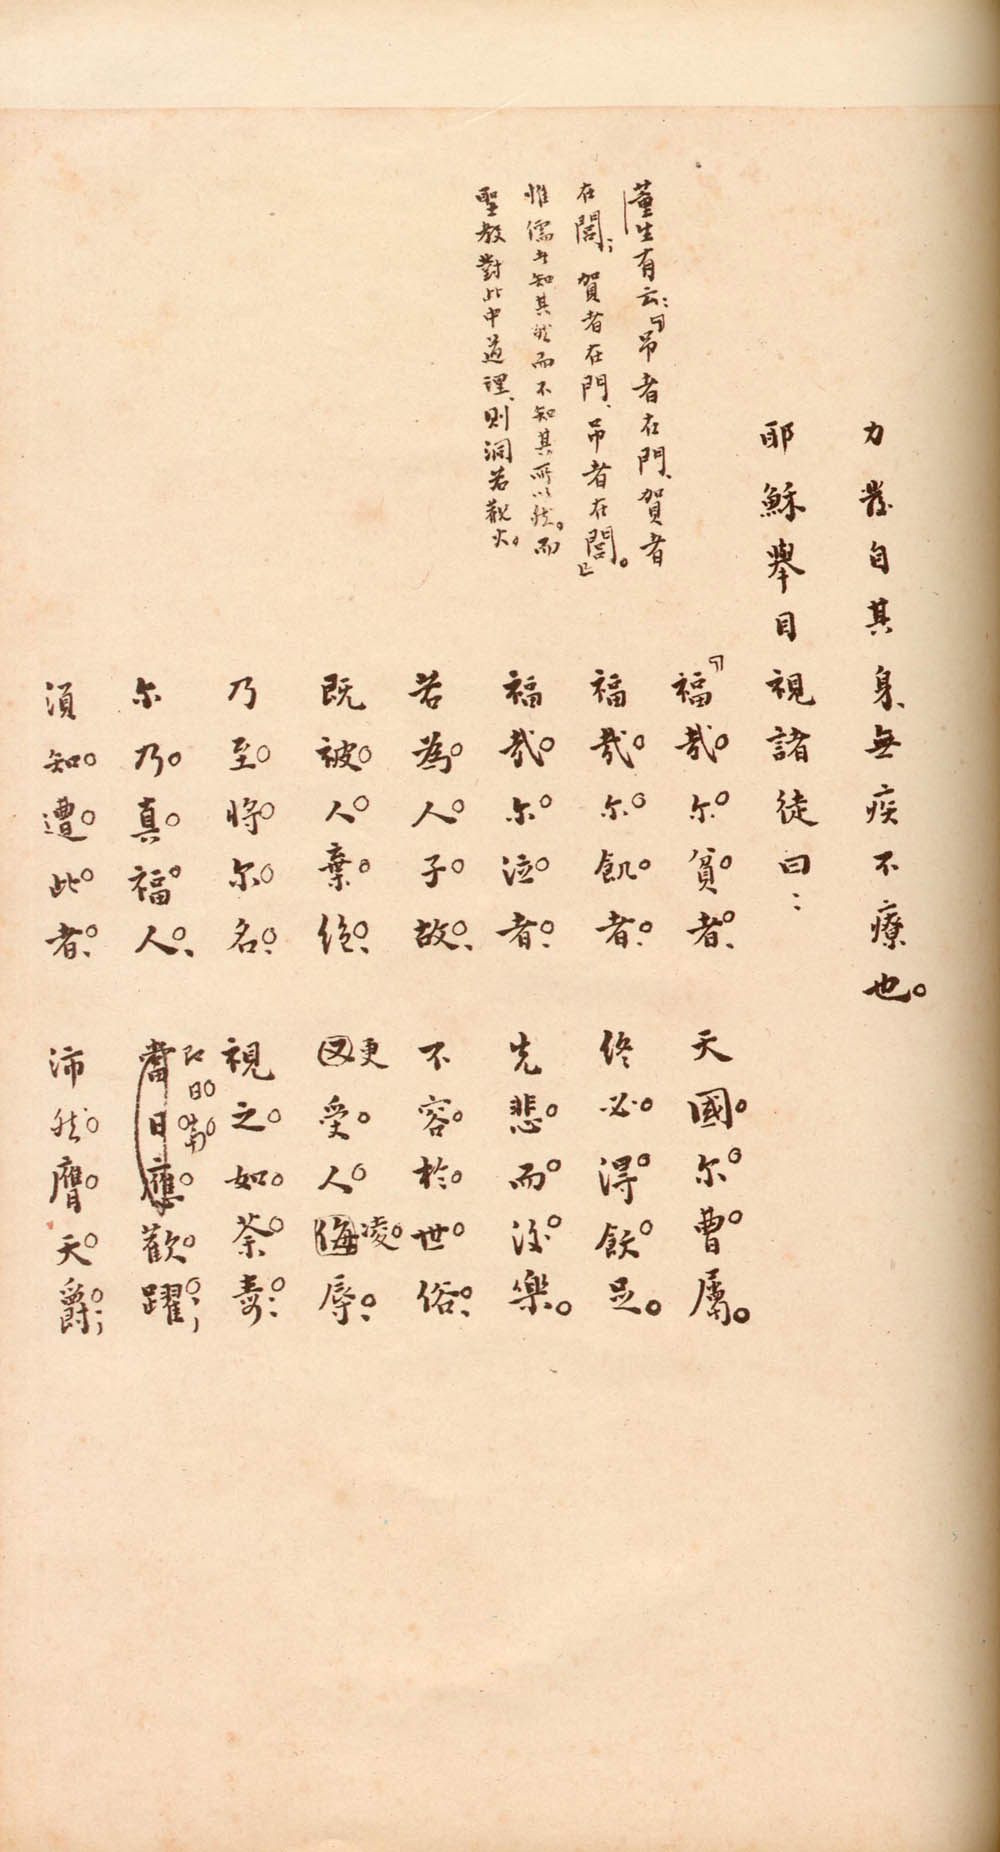 力發自其身、無疾不療也。
耶穌舉目視諸徒曰：
『福哉尔貧者、天國尔曹屬。
福哉尔飢者、終必得飫足。
福哉尔泣者、先悲而後樂。
若為人子故、不容於世俗、
既被人棄絕、更受人凌辱、
乃至將尔名、視之如荼毒；
尔乃真福人、即日當歡躍；
須知遭此者、沛然膺天爵；
董生有云：『吊者在門、賀者
在閭；賀者在門、吊者在閭』。
惟儒者知其然而不知其所以然。而
聖教對此中道理、則洞若觀火。